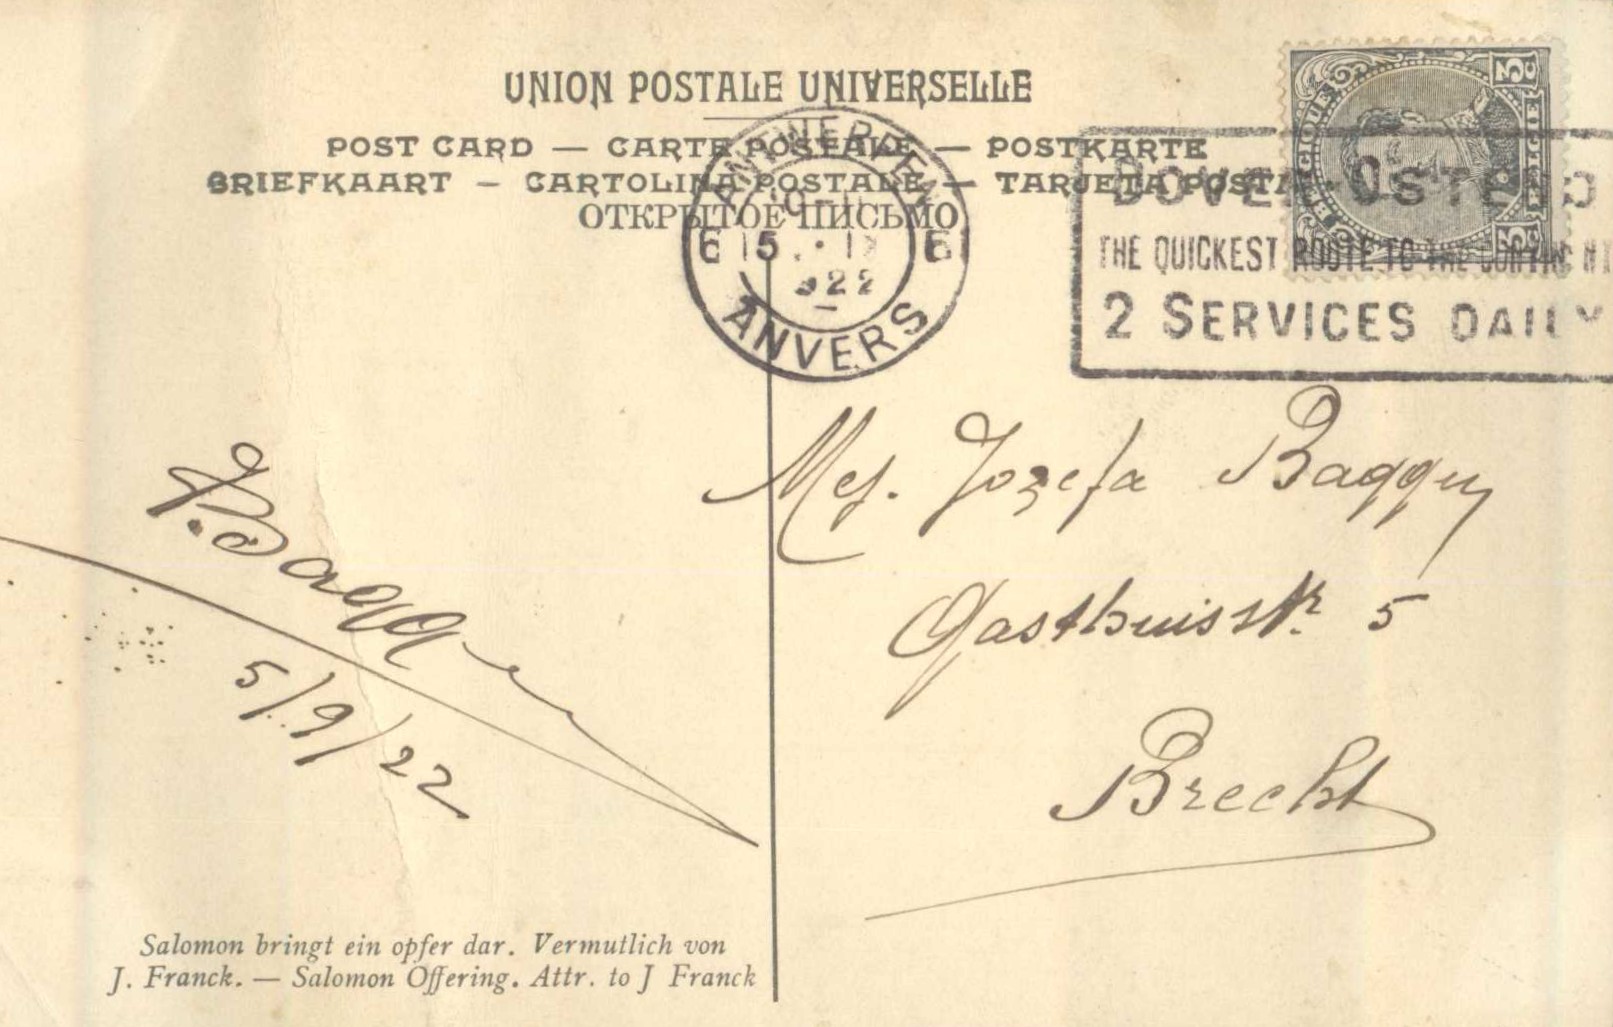 UNION POSTALE UNIVERSELLE
POST CARD — CARTE POSTALE — POSTKARTE
BRIEFKAART — CARTOLINA POSTALE — TARJETA POSTAL
ОТКРЫТОЕ ПИСЬМО
ANTWERPEN
6 15 IX 6
1922
ANVERS
BELGIQUE 3 C BELGIE 3 C
DOVER-OSTEND
THE QUICKEST ROUTE TO THE CONTINENT
2 SERVICES DAILY
Mej. Jozefa Baggen
Gasthuisstr. 5
Brecht
5/9/22
Salomon bringt ein opfer dar. Vermutlich von
J. Franck. — Salomon Offering. Attr. to J Franck